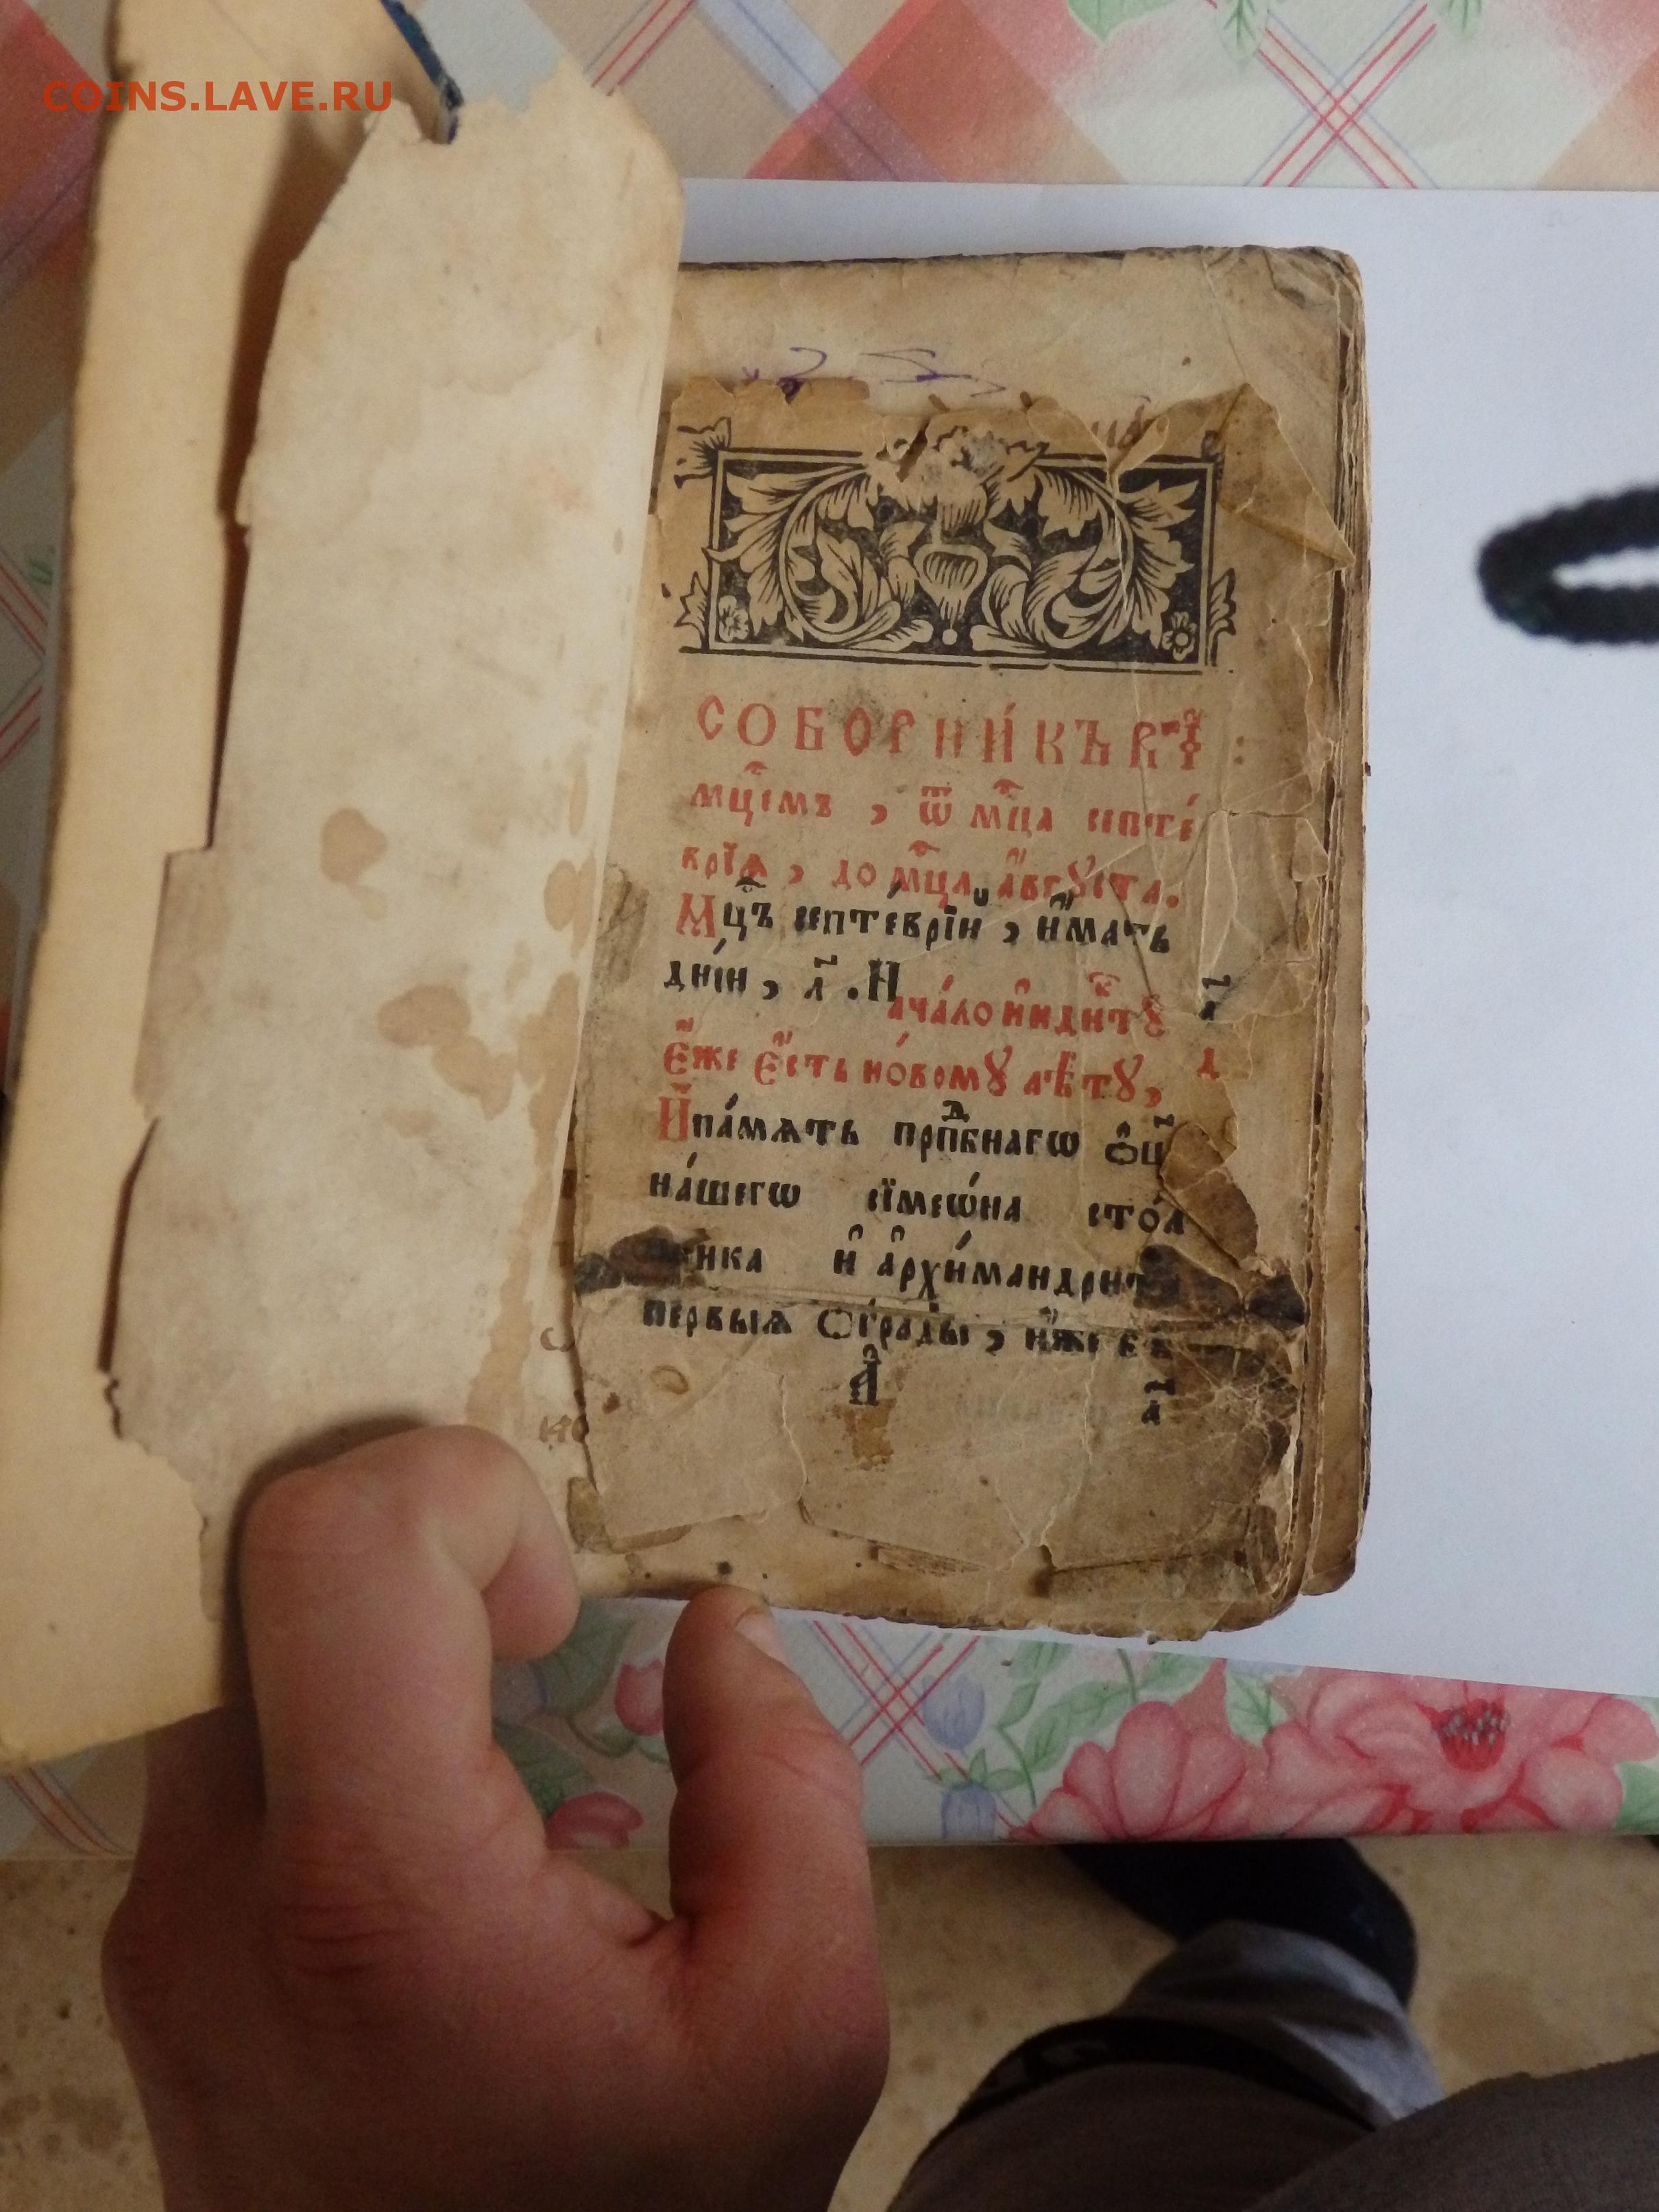 COINS.LAVE.RU
СОБОРНИ́КЪ В҃І :
мц҇емъ , ѿ мц҇а септе́
врїѧ , до мц҇а а҆́вгꙋста.
Мц҇ъ септе́врїй , и҆́мать
дні́й , л҃ . Нача́ло и҆нди́ктꙋ а҃
є҆́же є҆́сть но́вомꙋ лѣ́тꙋ , д
И҆ па́мѧть прпⷣбнагѡ ѻ҆ц҃
на́шегѡ сїмеѡ́на сто́л
ника и҆ а҆рхи́мандрит
первыѧ ѻ҆гра́ды , и҆́же є в
а҃